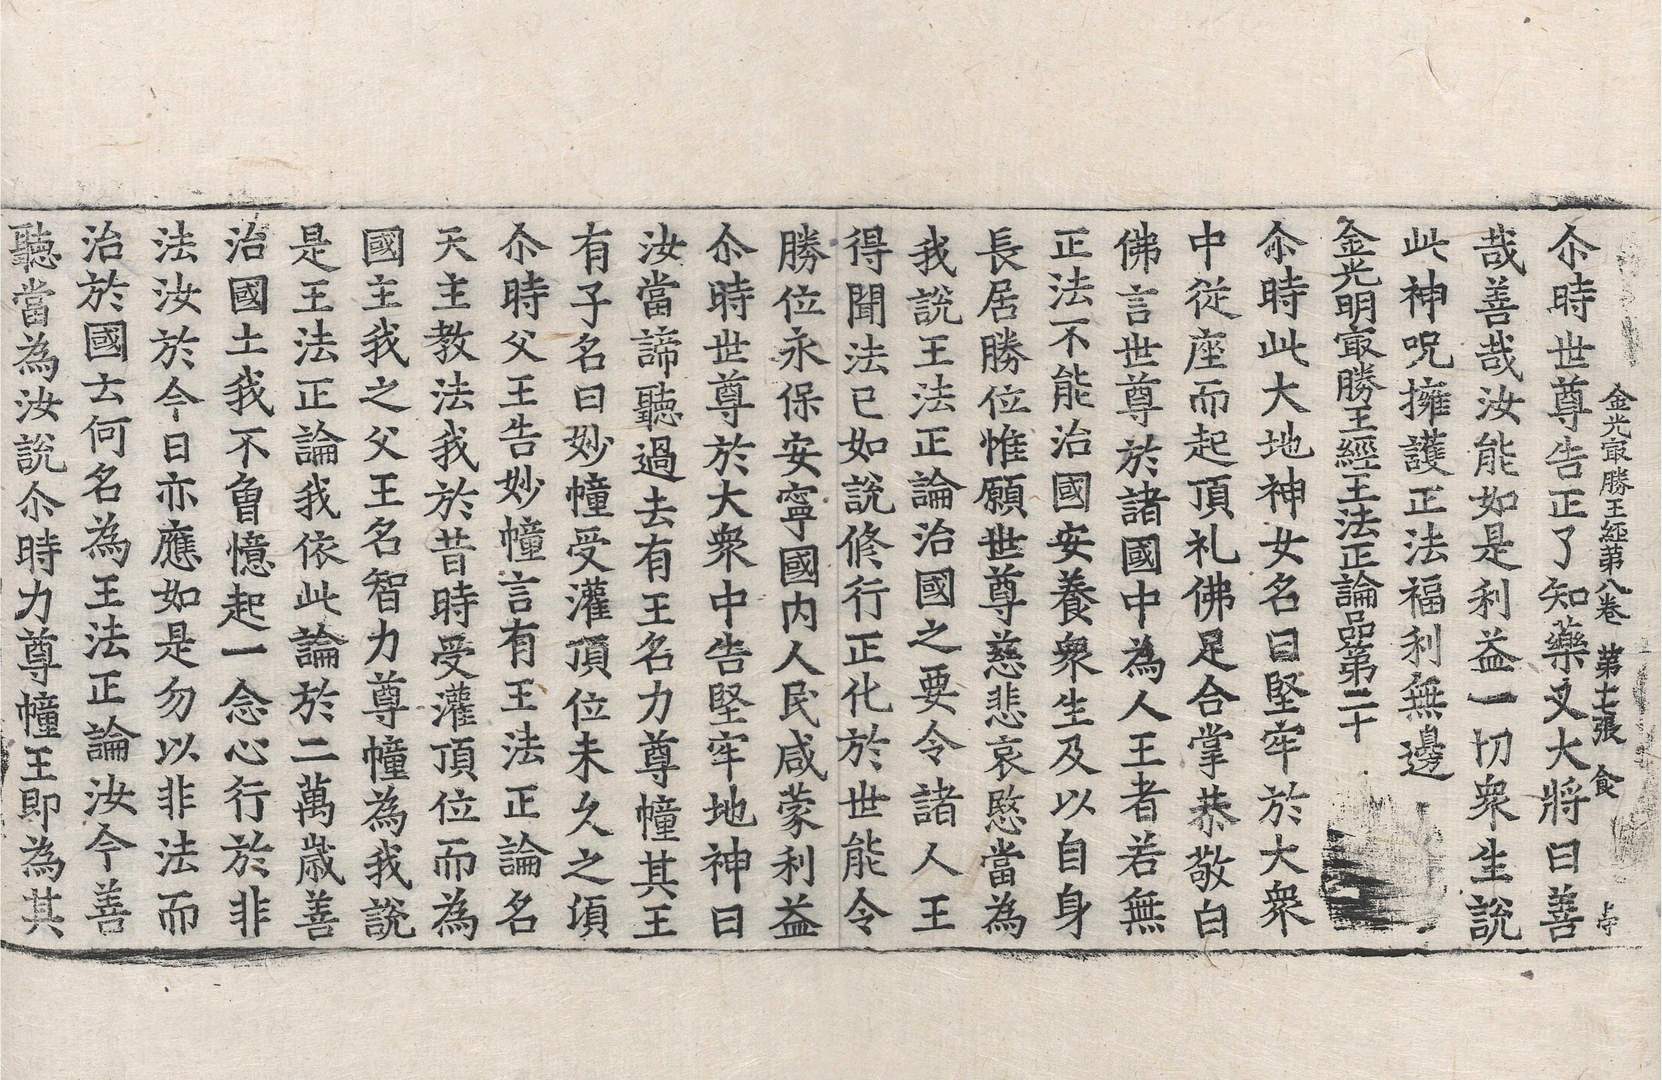 金光㝡勝王經第八卷 第七張 食
尒時世尊告正了知藥叉大將曰善
哉善哉汝能如是利益一切衆生說
此神呪擁護正法福利無邊
金光明㝡勝王經王法正論品第二十
尒時此大地神女名曰堅牢於大衆
中從座而起頂礼佛足合掌恭敬白
佛言世尊於諸國中為人王者若無
正法不能治國安養衆生及以自身
長居勝位惟願世尊慈悲哀愍當為
我說王法正論治國之要令諸人王
得聞法已如說修行正化於世能令
勝位永保安寧國內人民咸蒙利益
尒時世尊於大衆中告堅牢地神曰
汝當諦聽過去有王名力尊幢其王
有子名曰妙幢受灌頂位未久之須
尒時父王告妙幢言有王法正論名
天主教法我於昔時受灌頂位而為
國主我之父王名智力尊幢為我說
是王法正論我依此論於二萬歲善
治國土我不曾憶起一念心行於非
法汝於今日亦應如是勿以非法而
治於國云何名為王法正論汝今善
聽當為汝說尒時力尊幢王即為其